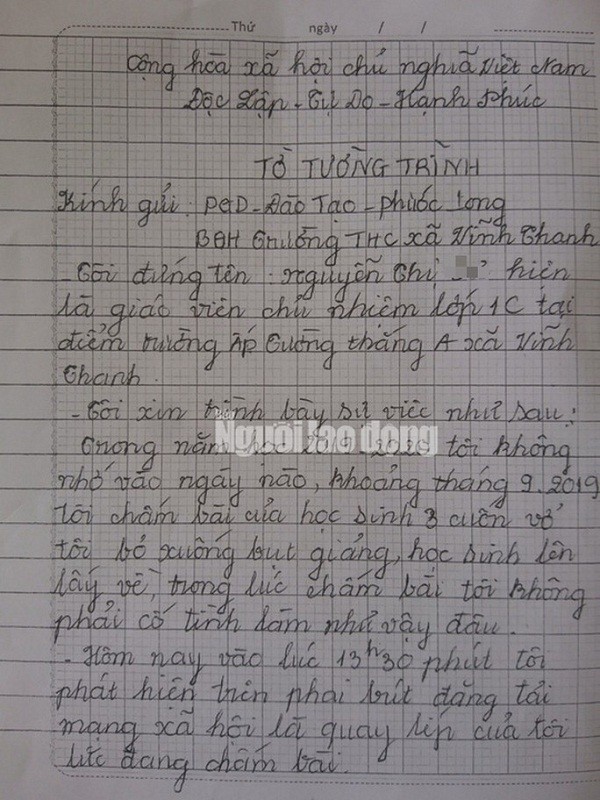 Thứ ngày / /
Cộng hòa xã hội chủ nghĩa Việt Nam
Độc Lập - Tự Do - Hạnh Phúc
TỜ TƯỜNG TRÌNH
Kính gửi: PGD - Đào Tạo - Phước Long
BGH Trường THC xã Vĩnh Thanh
- Tôi đứng tên: Nguyễn Thị hiện
là giáo viên chủ nhiệm lớp 1C tại
điểm trường Ấp Tường thắng A xã Vĩnh
Thanh.
- Tôi xin trình bày sự việc như sau:
Người Lao động
Trong năm học 2019-2020 tôi không
nhớ vào ngày nào, khoảng tháng 9.2019
tôi chấm bài của học sinh 3 cuốn vở
tôi bỏ xuống bục giảng, học sinh lên
lấy về, trong lúc chấm bài tôi không
phải cố tình làm như vậy đâu.
- Hôm nay vào lúc 13h30 phút tôi
phát hiện trên phai bút đăng tải
mạng xã hội là quay líp của tôi
lúc đang chấm bài.